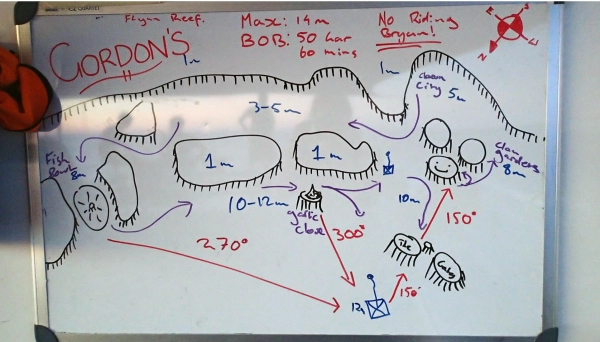 Flynn Reef.
GORDON'S
Max: 14m
BOB: 50 bar
60 mins
No Riding
Bryam!
1m
1m
clown
City 5m
3-5m
Fish
Bowl
8m
1m
1m
clam
gardens
8m
10-12m
garlic
clove
10m
150°
270°
300°
The
12m
150°